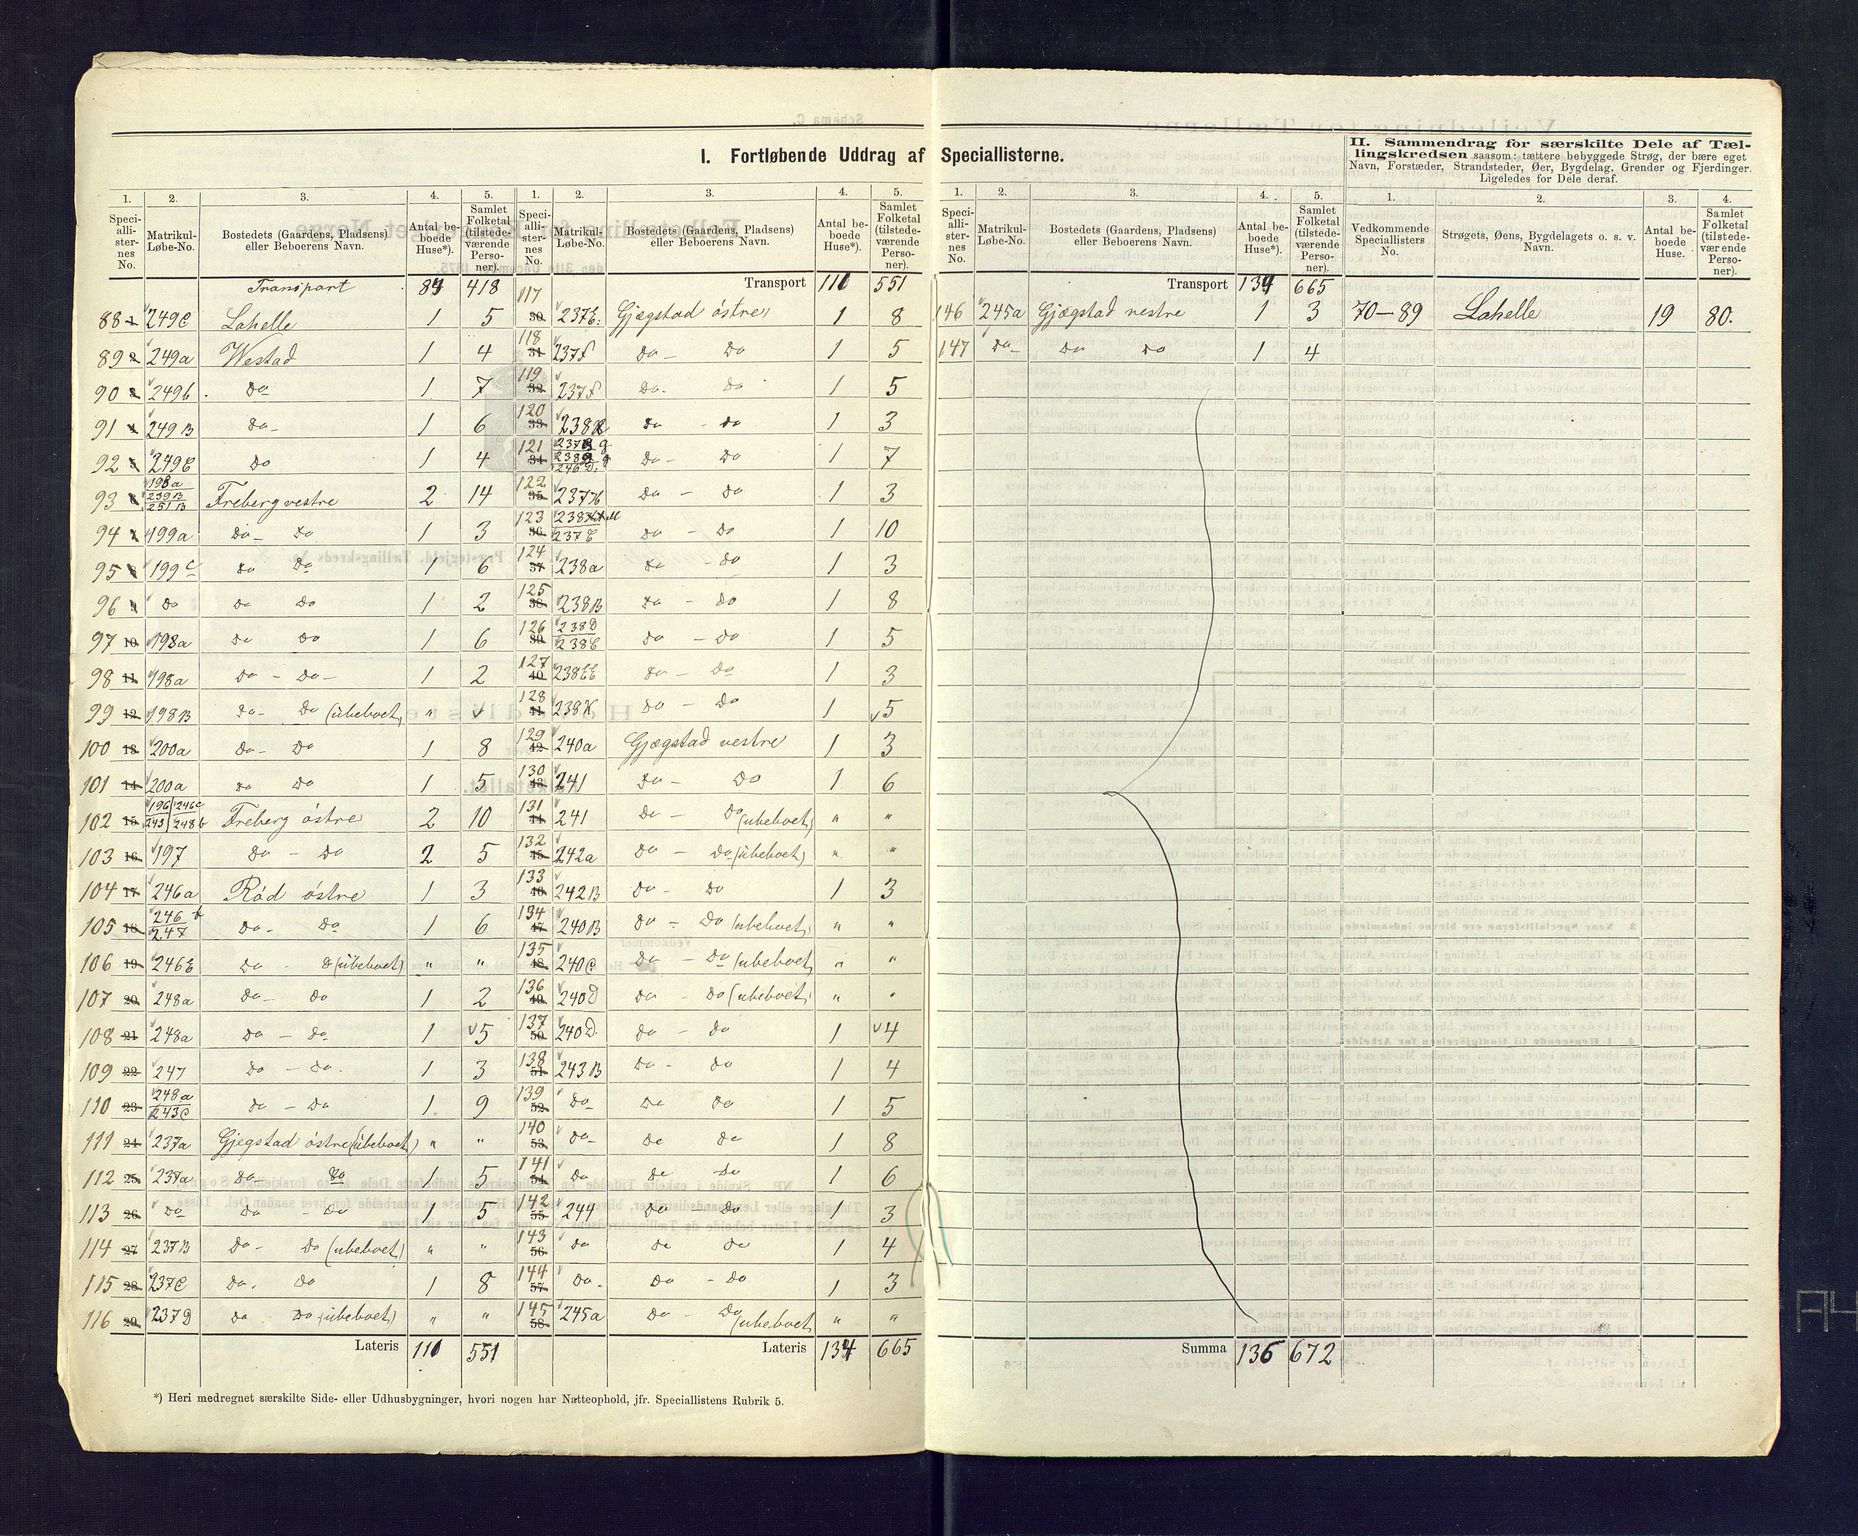 I. Fortløbende Uddrag af Speciallisterne.
II. Sammendrag for særskilte Dele af Tæl-
lingskredsen saasom: tættere bebyggede Strøg, der bære eget
Navn, Forstæder, Strandsteder, Øer, Bygdelag, Grender og Fjerdinger.
Ligeledes for Dele deraf.
1. 2. 3. 4. 5.
Speciallisternes No. Matrikul-Løbe-No. Bostedets (Gaardens, Pladsens) eller Beboerens Navn. Antal beboede Huse*). Samlet Folketal (tilstedeværende Personer).
Transport 84 418
88 1 249C Lahelle 1 5
89 2 249a Westad 1 4
90 3 249b do 1 7
91 4 249B do- 1 6
92 5 249E do 1 4
93 6 198a 239B 251B Freberg vestre 2 14
94 7 199a do- do 1 3
95 8 199c do do 1 6
96 9 do do do 1 2
97 10 198a do do 1 6
98 11 198a do - do- 1 2
99 12 198B do- do (ubeboet) "
100 13 200a do- do 1 8
101 14 200a do do 1 5
102 15 196 246c 243 248b Freberg östre 2 10
103 16 197 do - do 2 5
104 17 246a Röd östre 1 3
105 18 246b 247 do- do 1 6
106 19 246E do - d (ubeboet) " "
107 20 248a do- do 1 2
108 21 248a do - do 1 5
109 22 247 do - do. 1 3
110 23 248a 243C do - do 1 9
111 24 237a Gjegstad östre (ubeboet) " "
112 25 237a do- do 1 5
113 26 do do do 1 5
114 27 237B do- do (ubeboet) " "
115 28 237C do. do 1 8
116 29 237D do do (ubeboet) " "
Lateris 110 551
1. 2. 3. 4. 5.
Speciallisternes No. Matrikul-Løbe-No. Bostedets (Gaardens, Pladsens) eller Beboerens Navn. Antal beboede Huse*). Samlet Folketal (tilstedeværende Personer).
Transport 110 551
117 30 237E. Gjægstad östre 1 8
118 31 237F do- do 1 5
119 32 237F do. do 1 5
120 33 238 do - do 1 3
121 34 246D. do- do 1 7
122 35 237H do - do 1 3
123 36 237E do - do 1 10
124 37 238a do - do 1 3
125 38 238B do - do 1 8
126 39 238D 238E do - do 1 5
127 40 238EE do - do 1 3
128 41 238K do - do 1 5
129 42 240a Gjægstad vestre 1 3
130 43 241 do- do 1 6
131 44 241 do - do (ubeboet) " "
132 45 242a do - do (ubeboet) " "
133 46 242B do- do 1 3
134 47 240B do - do (ubeboet) " "
135 48 240C do - do (ubeboet) " "
136 49 240D do - do (ubeboet) " "
137 50 240D. do - do 1 4
138 51 243B do- do 1 4
139 52 do do do 1 5
140 53 do- do do 1 8
141 54 do do -do 1 6
142 55 244 do do 1 3
143 56 do do do 1 4
144 57 do. do - do 1 3
145 58 245a do- do (ubeboet) " "
Lateris 134 665
*) Heri medregnet særskilte Side- eller Udhusbygninger, hvori nogen har Natteophold, jfr. Speciallistens Rubrik 5.
1. 2. 3. 4. 5.
Speciallisternes No. Matrikul-Løbe-No. Bostedets (Gaardens, Pladsens) eller Beboerens Navn. Antal beboede Huse*). Samlet Folketal (tilstedeværende Personer).
Transport 134 665
146 245a Gjægstad vestre 1 3
147 do- do do 1 4
Summa 136 672
1. 2. 3. 4.
Vedkommende Speciallisters No. Strøgets, Øens, Bygdelagets o. s. v. Navn. Antal beboede Huse. Samlet Folketal (tilstedeværende Personer).
70-89 Lahelle 19 80.